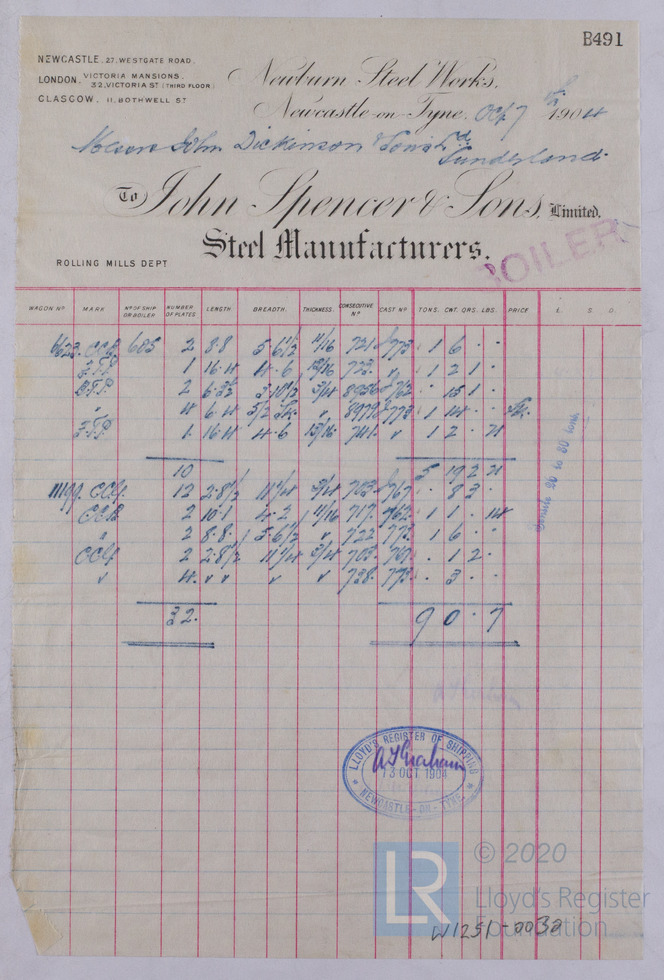 B491
NEWCASTLE, 27, WESTGATE ROAD.
LONDON, VICTORIA MANSIONS, 32, VICTORIA ST (THIRD FLOOR)
GLASGOW, 11, BOTHWELL ST
Newburn Steel Works,
Newcastle-on-Tyne, Oct 7th 1904
Messrs John Dickinson & Sons Ld
Sunderland.
To John Spencer & Sons, Limited.
Steel Manufacturers.
BOILER
ROLLING MILLS DEPT
WAGON No MARK No OF SHIP OR BOILER NUMBER OF PLATES LENGTH BREADTH. THICKNESS. CONSECUTIVE No CAST No TONS. CWT. QRS. LBS. PRICE £ S D.
605 2 8.8 5.6 1/2 11/16 721 773 1 6 . .
1 16.4 4.6 15/16 723 " 1 2 1 .
2 3/4 762 . 15 1 .
4 6.4 " 773 1 14 . .
1 16.4 4.6 15/16 741 " 1 2 . 21
10 5 19 2 21
12 2.8 1/2 11 1/4 3/4 703 767 . 8 3 .
2 10.1 4.2 11/16 717 762 1 1 . 14
" 2 8.8 5.6 1/2 " 722 773 1 6 . .
2 2.8 1/2 11 1/4 3/4 703 767 . 1 2 .
" 4 " " " " 738 773 . 3 . .
32. 9 0 . 7
Tensile 26 to 30 tons
LLOYD'S REGISTER OF SHIPPING
A T Graham
13 OCT 1904
NEWCASTLE-ON-TYNE
LR
© 2020
Lloyd's Register
Foundation
W1251-0032